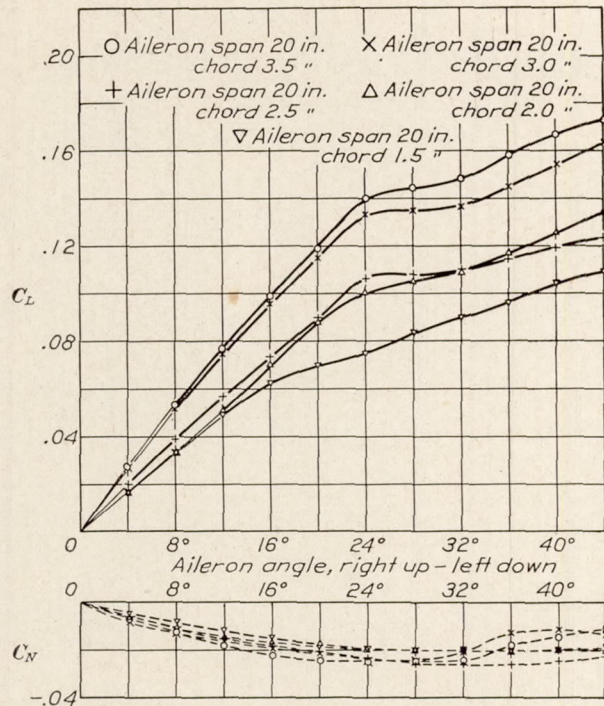 .20
O Aileron span 20 in. chord 3.5 "
× Aileron span 20 in. chord 3.0 "
+ Aileron span 20 in. chord 2.5 "
△ Aileron span 20 in. chord 2.0 "
▽ Aileron span 20 in. chord 1.5 "
.16
.12
C_L
.08
.04
0
0 8° 16° 24° 32° 40°
Aileron angle, right up - left down
0 8° 16° 24° 32° 40°
C_N
-.04